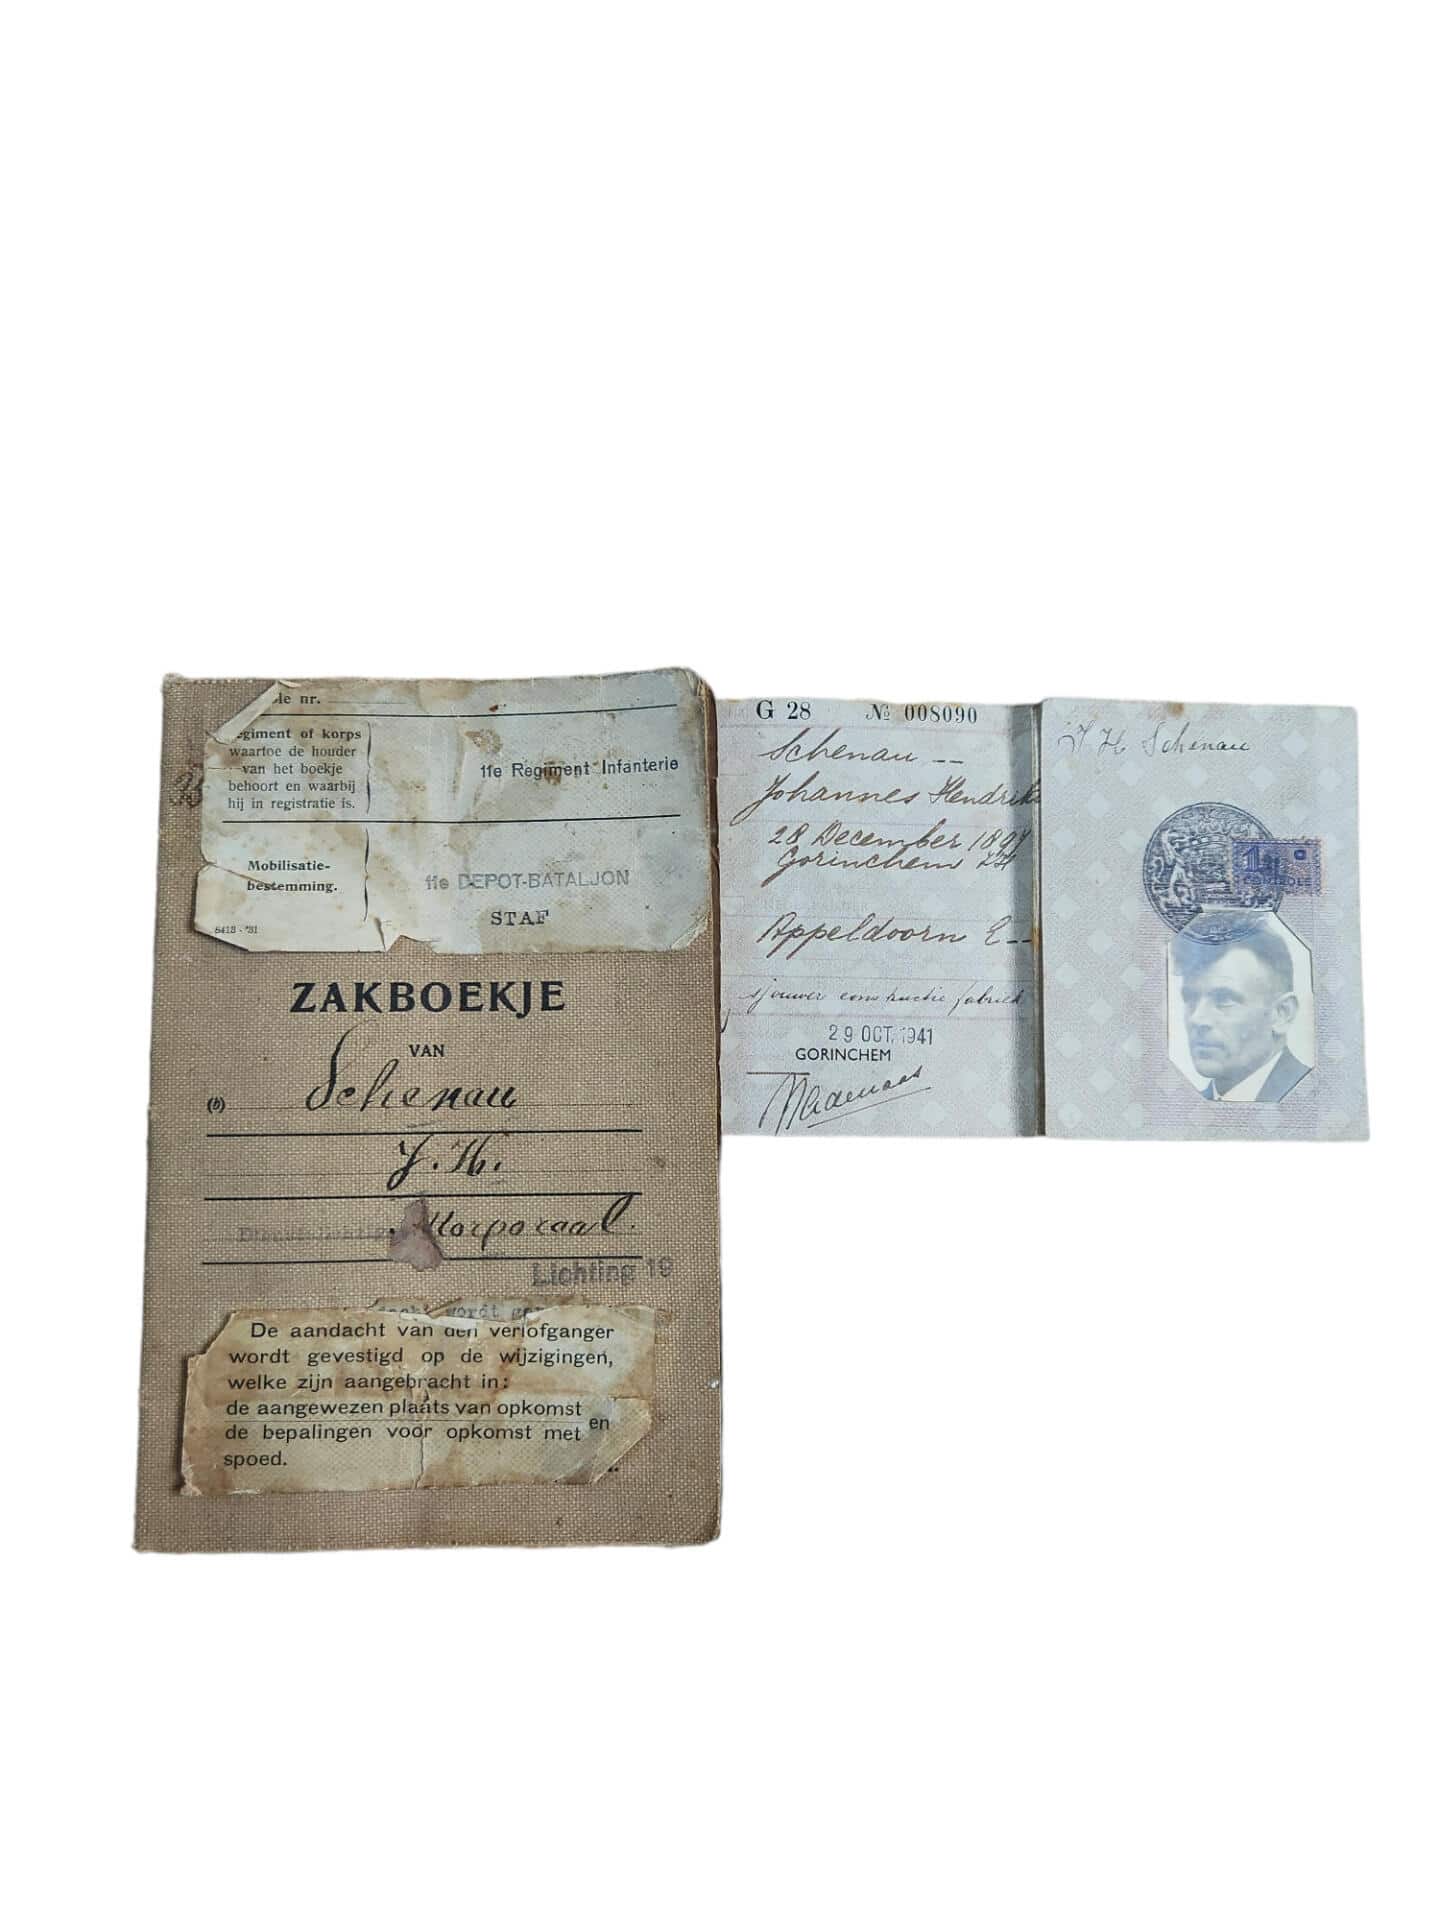 nr.
Regiment of korps
waartoe de houder
van het boekje
behoort en waarbij
hij in registratie is.
11e Regiment Infanterie
Mobilisatie-
bestemming.
11e DEPOT-BATALJON
STAF
6413 - '31
ZAKBOEKJE
VAN
(b) Schenau
J. H.
Korporaal.
Lichting 19
wordt
De aandacht van den verlofganger
wordt gevestigd op de wijzigingen,
welke zijn aangebracht in:
de aangewezen plaats van opkomst
en
de bepalingen voor opkomst met
spoed.
G 28 № 008090
Schenau --
Johannes Hendrik
28 December 1897
Gorinchem ZH
Appeldoorn E--
sjouwer constructie fabriek
29 OCT. 1941
GORINCHEM
J H Schenau
1